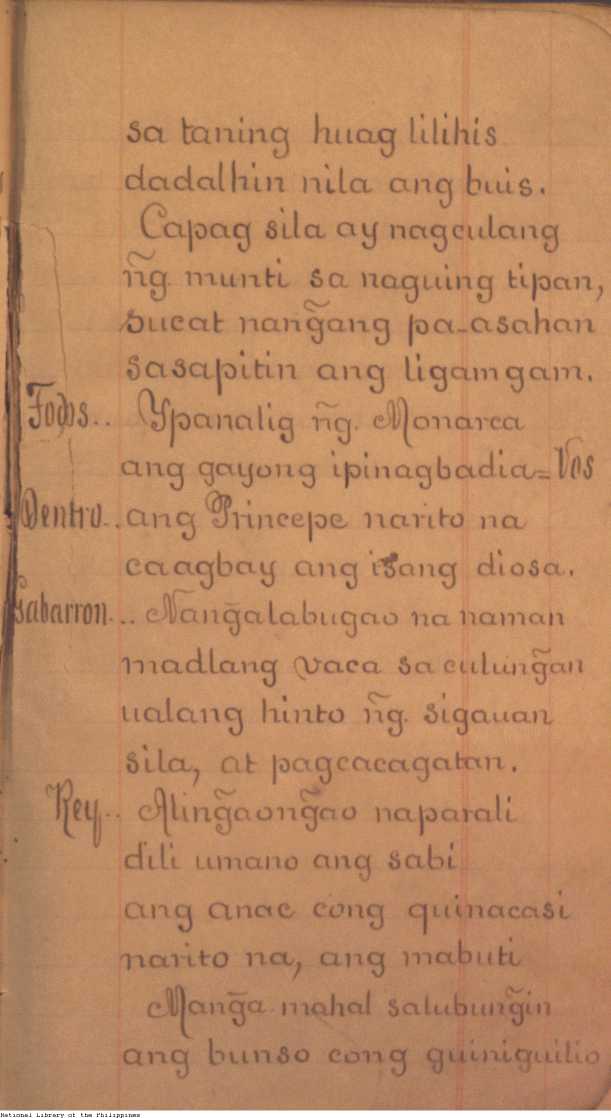 sa taning huag lilihis
dadalhin nila ang buis.
Capag sila ay nagculang
ñg. munti sa naguing tipan,
sucat nang̃ang pa-asahan
sasapitin ang ligamgam.
Todos.. Ypanalig ñg. Monarca
ang gayong ipinagbadia= Vos
Dentro.. ang Princepe narito na
caagbay ang isang diosa.
Gabarron... Nang̃alabugao na naman
madlang vaca sa culung̃an
ualang hinto ñg. sigauan
sila, at pagcacagatan.
Rey.. Aling̃aong̃ao naparali
dili umano ang sabi
ang anac cong quinacasi
narito na, ang mabuti
Mang̃a mahal salubung̃in
ang bunso cong guiniguilio
National Library of the Philippines